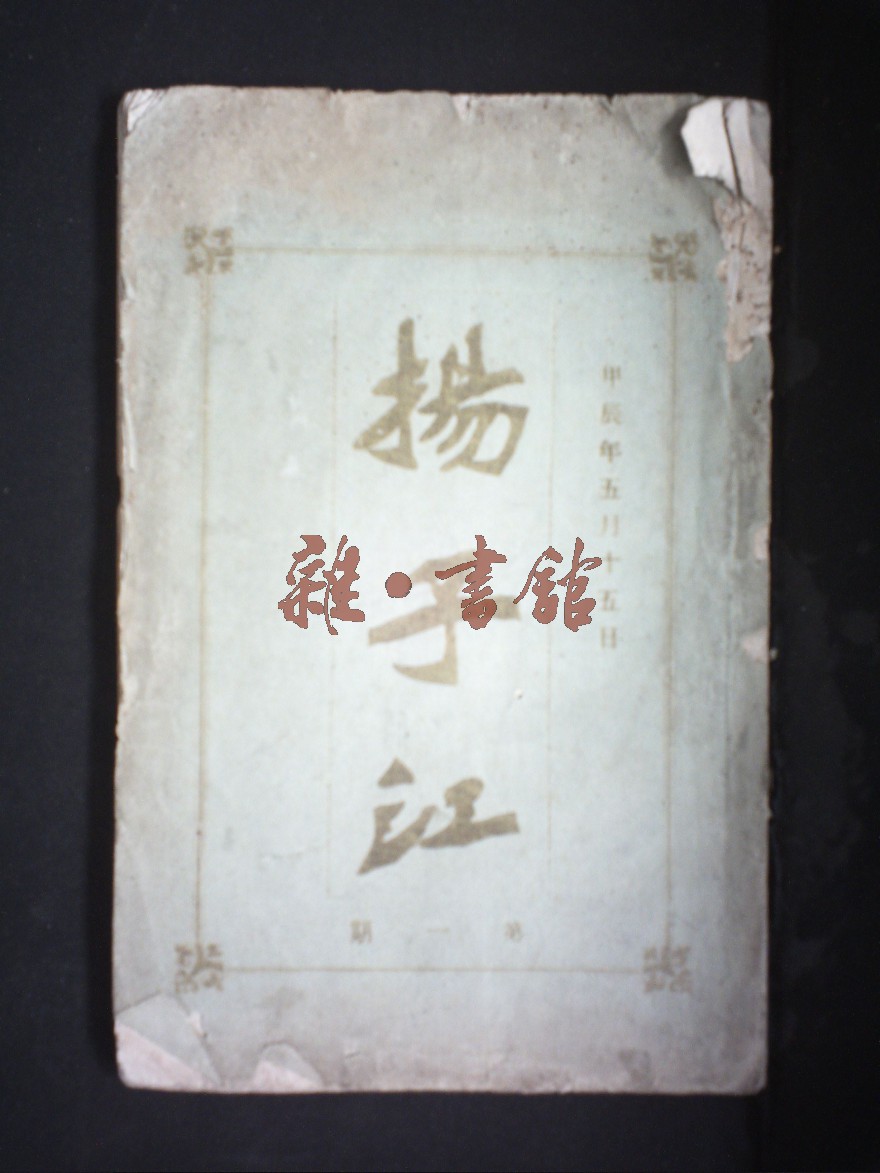 甲辰年五月十五日
揚子江
第一期
雜·書館